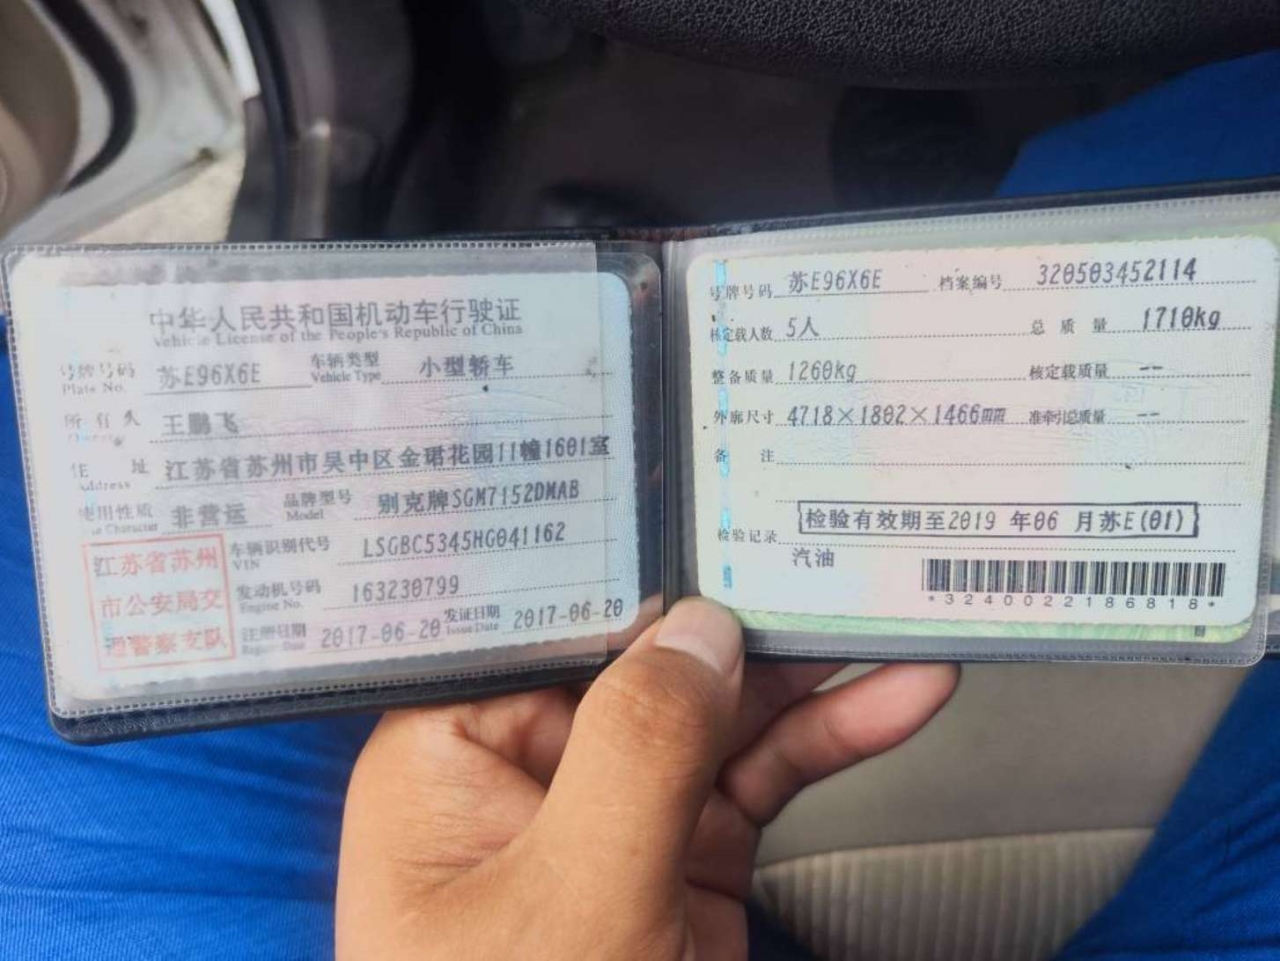 中华人民共和国机动车行驶证
Vehicle License of the People's Republic of China
号牌号码 苏E96X6E 车辆类型 小型轿车
Plate No. Vehicle Type
所有人 王鹏飞
住址 江苏省苏州市吴中区金珺花园11幢1601室
Address
使用性质 非营运 品牌型号 别克牌SGM7152DMAB
Use Character Model
江苏省苏州
市公安局交
通警察支队
车辆识别代号 LSGBC5345HG041162
VIN
发动机号码 163230799
Engine No.
注册日期 2017-06-20 发证日期 2017-06-20
Register Date Issue Date
号牌号码 苏E96X6E 档案编号 320503452114
核定载人数 5人 总质量 1710kg
整备质量 1260kg 核定载质量 --
外廓尺寸 4718×1802×1466mm 准牵引总质量 --
备注
检验有效期至2019 年06 月苏E(01)
检验记录
汽油
*3240022186818*